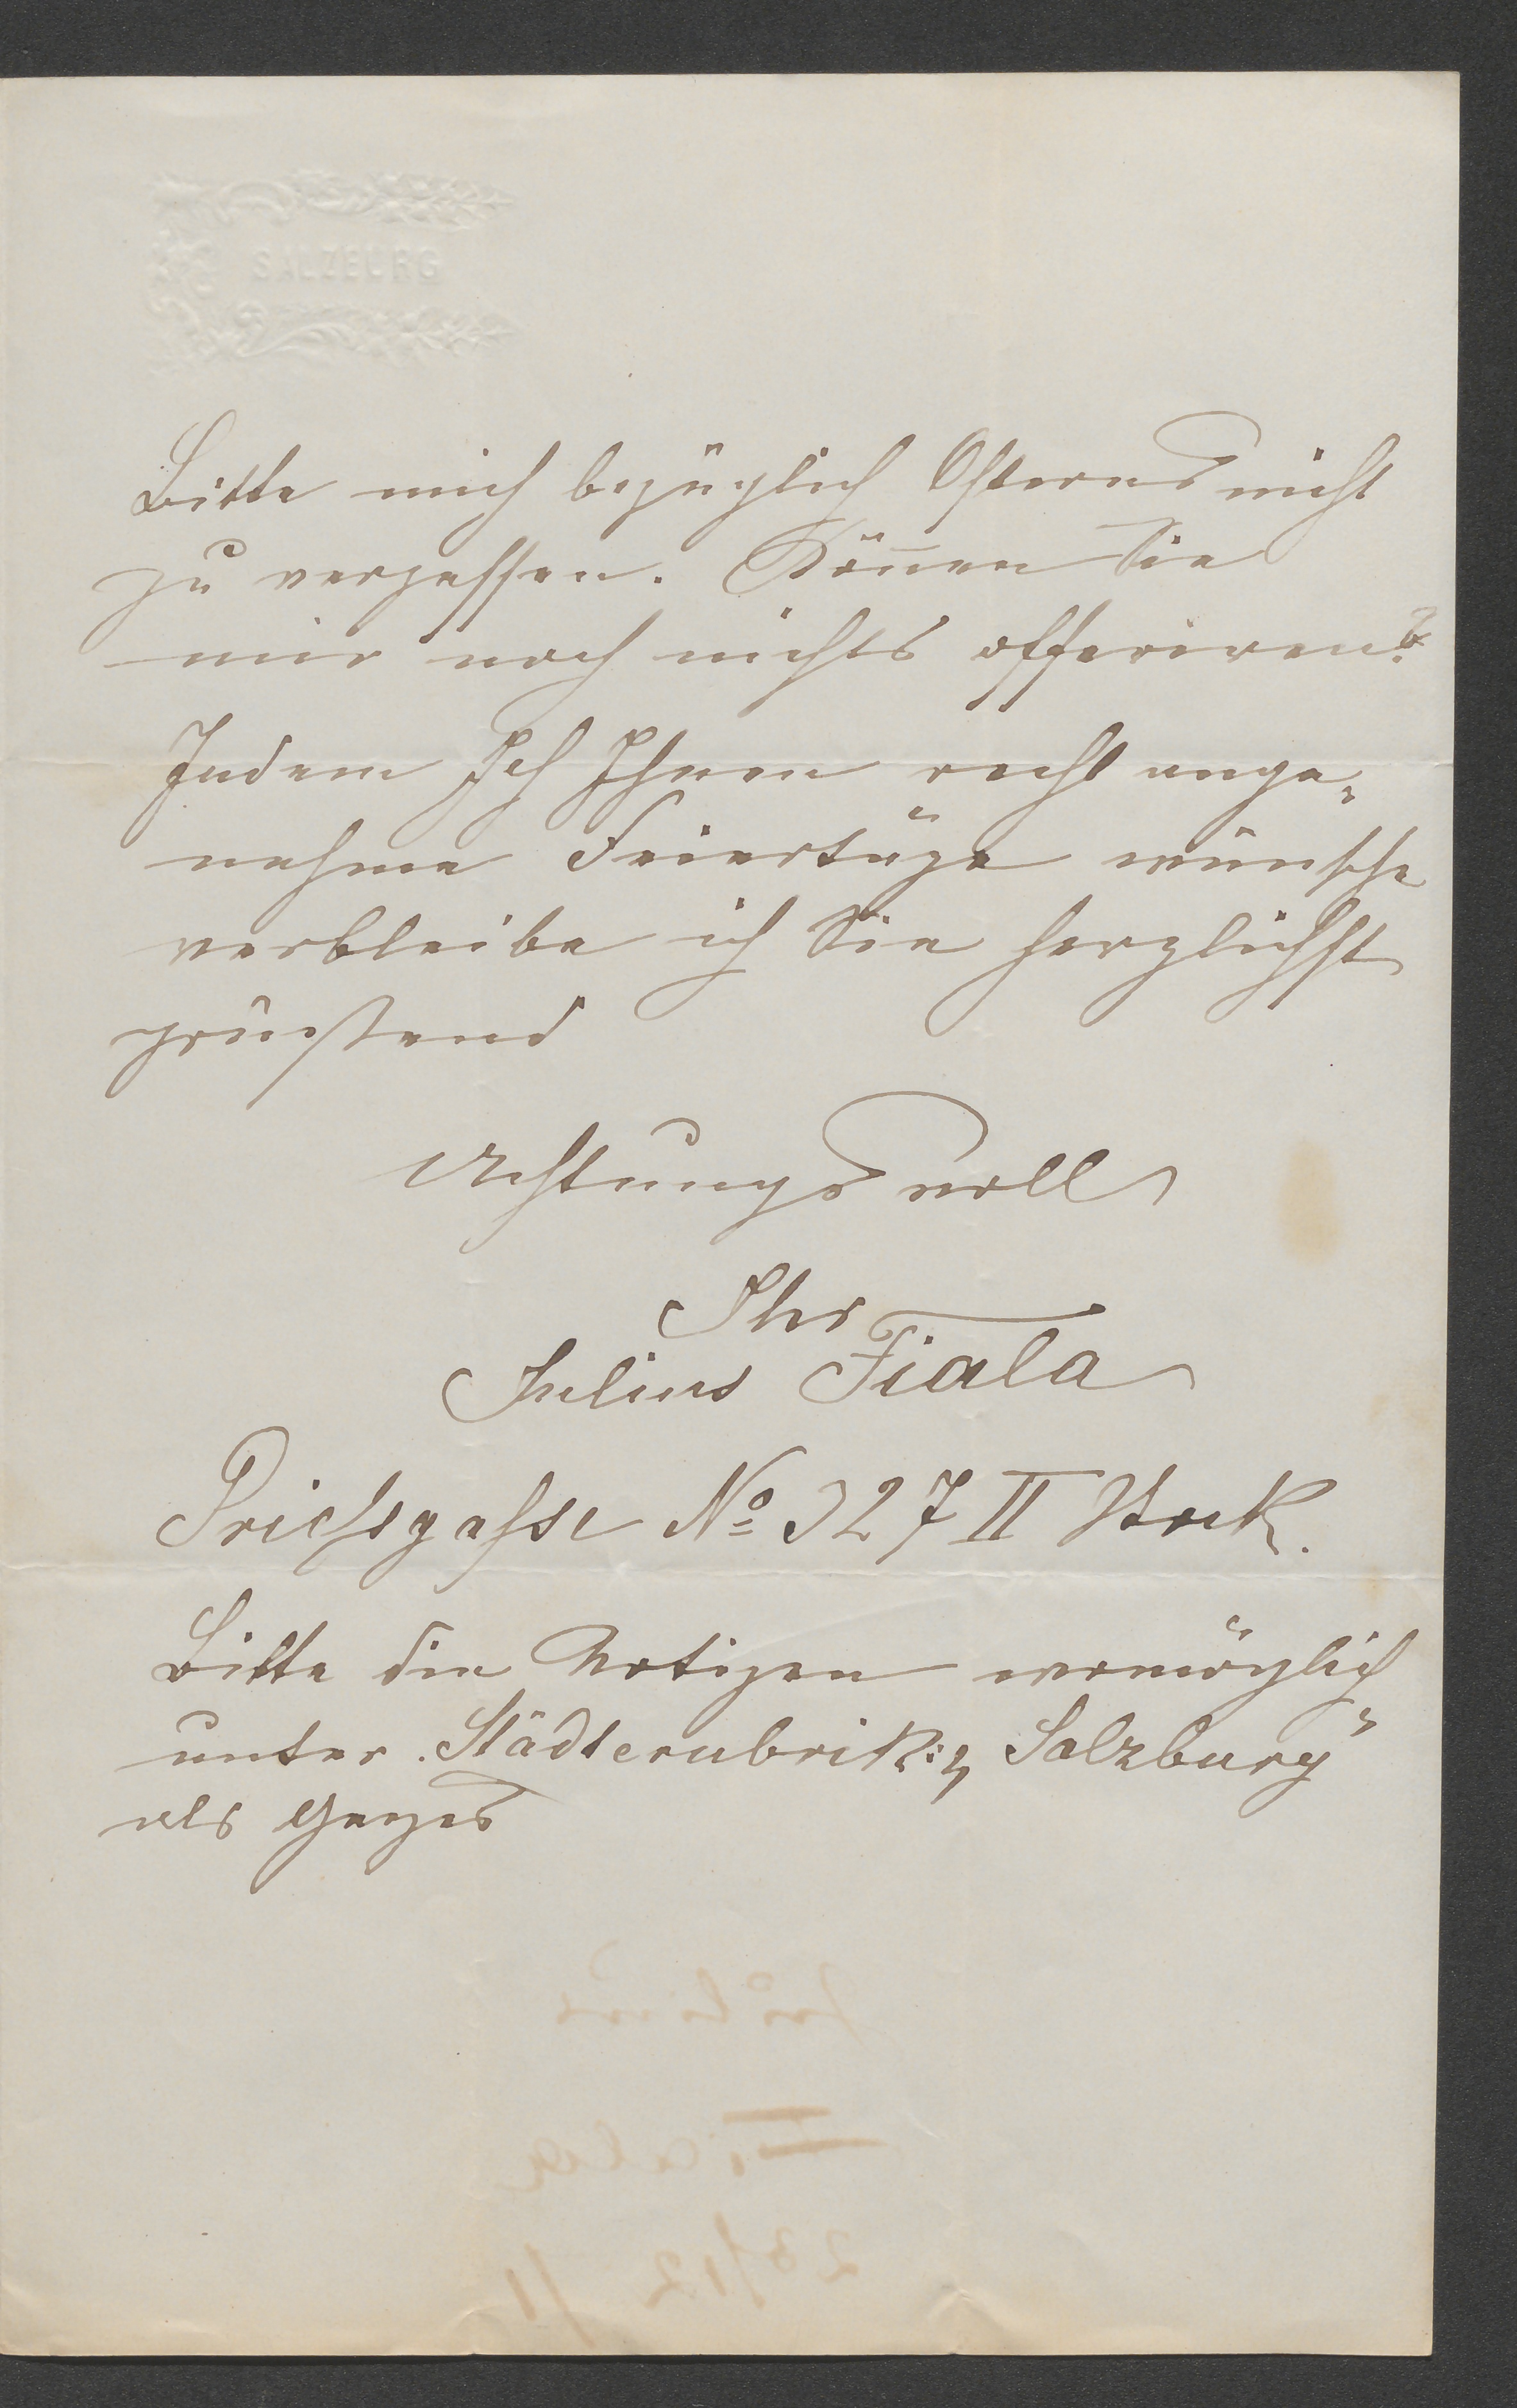 SALZBURG
Bitte mich bezüglich Osterns nicht
zu vergessen. Können Sie
mir noch nichts offeriren?
Indem Ich Ihnen recht ange=
nehme Feiertage wünsche
verbleibe ich Sie herzlichst
grüßend
Achtungsvoll
Ihr
Julius Fiala
Priessgasse No 327 II Stock.
Bitte die Notizen womöglich
unter Städterubrik: „Salzburg"
als Ganzes
Julius
Fiala
23/12